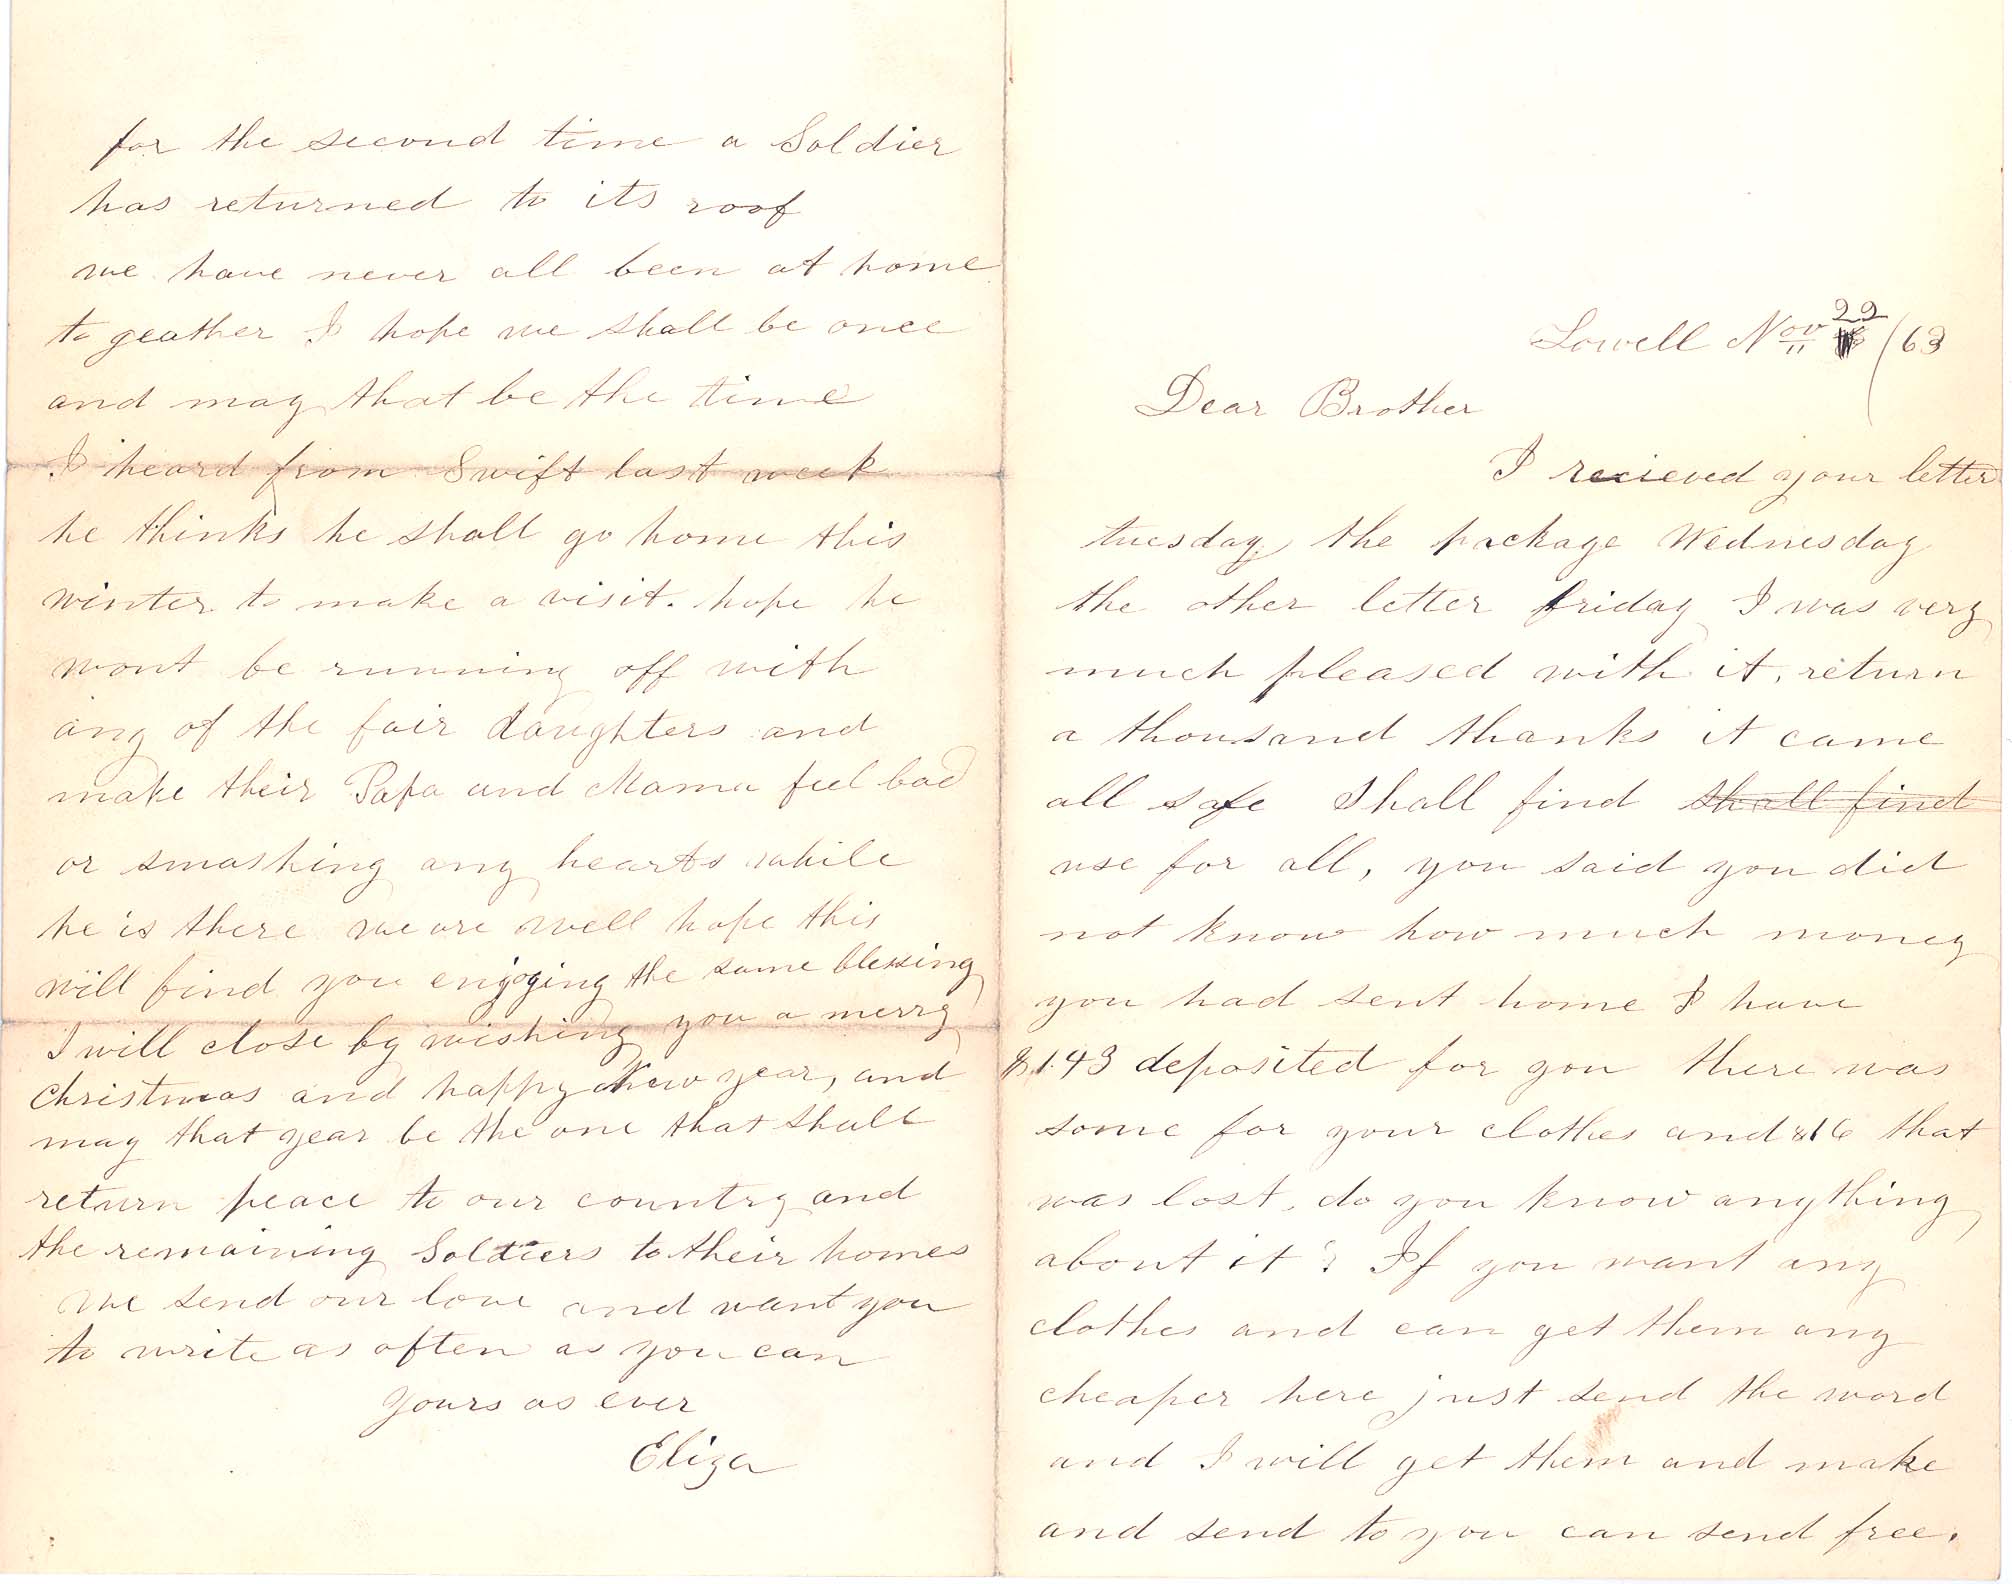 Lowell Nov 22 /63
Dear Brother
I recieved your letter
tuesday, the package Wednesday
the other letter friday I was very
much pleased with it, return
a thousand thanks it came
all safe Shall find shall find
use for all, you said you did
not know how much money
you had sent home I have
$143 deposited for you there was
some for your clothes and $16 that
was lost, do you know anything
about it? If you want any
clothes and can get them any
cheaper here just send the word
and I will get them and make
and send to you can send free.
for the second time a Soldier
has returned to its roof
we have never all been at home
to geather I hope we shall be once
and may that be the time
I heard from Swift last week
he thinks he shall go home this
winter to make a visit. hope he
wont be running off with
any of the fair daughters and
make their Papa and Mama feel bad
or smashing any hearts while
he is there we are well hope this
will find you enjoying the same blessing
I will close by wishing you a merry
christmas and happy New year, and
may that year be the one that shall
return peace to our country and
the remaining Soldiers to their homes
We send our love and want you
to write as often as you can
yours as ever
Eliza